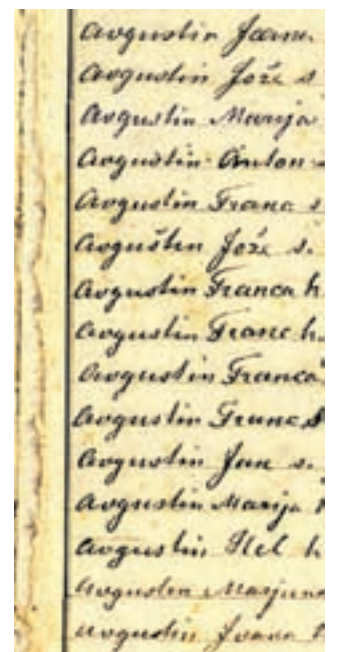 Avguštin Joana
Avguštin Jože s
Avguštin Marija
Avguštin Anton
Avguštin Franc s
Avguštin Jože s.
Avguštin Franca h
Avguštin Franc h.
Avguštin Franca
Avguštin Franc S
Avguštin Jan s.
Avguštin Marija
Avguštin h
Avguštin Marjana
Avguštin Joana